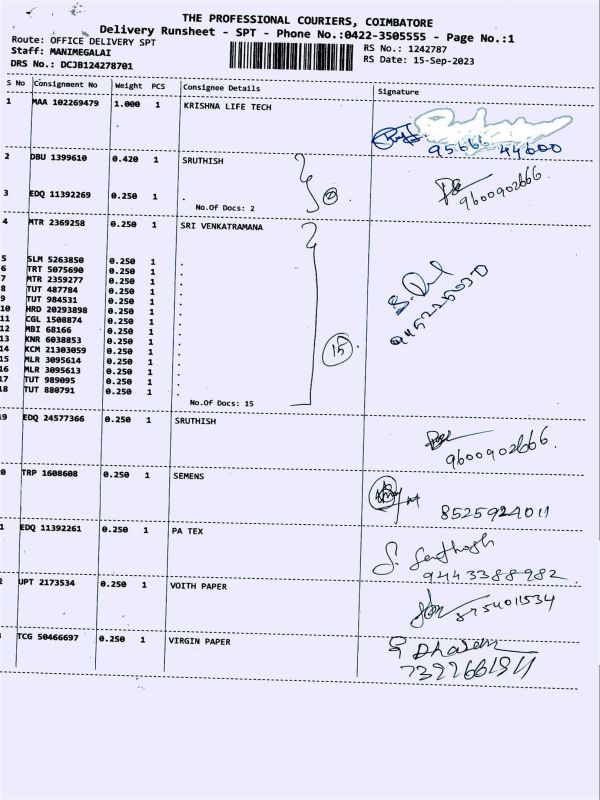 THE PROFESSIONAL COURIERS, COIMBATORE
Delivery Runsheet - SPT - Phone No.:0422-3505555 - Page No.:1
Route: OFFICE DELIVERY SPT RS No.: 1242787
Staff: MANIMEGALAI RS Date: 15-Sep-2023
DRS No.: DCJB124278701
S No Consignment No Weight PCS Consignee Details Signature
1 MAA 102269479 1.000 1 KRISHNA LIFE TECH
95666 44600
2 DBU 1399610 0.420 1 SRUTHISH
9600902666.
3 EDQ 11392269 0.250 1 .
No.Of Docs: 2 2
4 MTR 2369258 0.250 1 SRI VENKATRAMANA
5 SLM 5263850 0.250 1 .
6 TRT 5075690 0.250 1 .
7 MTR 2359277 0.250 1 .
8 TUT 487784 0.250 1 .
9 TUT 984531 0.250 1 .
10 HRD 20293898 0.250 1 .
11 CGL 1508874 0.250 1 .
12 MBI 68166 0.250 1 .
13 KNR 6038853 0.250 1 .
14 KCM 21303059 0.250 1 . 15
15 MLR 3095614 0.250 1 .
16 MLR 3095613 0.250 1 .
17 TUT 989095 0.250 1 .
18 TUT 880791 0.250 1 .
No.Of Docs: 15
9 EDQ 24577366 0.250 1 SRUTHISH
9600902666.
0 TRP 1608608 0.250 1 SEMENS
8525924011
1 EDQ 11392261 0.250 1 PA TEX
S. Santhosh
9443388982
2 UPT 2173534 0.250 1 VOITH PAPER
8754011534
3 TCG 50466697 0.250 1 VIRGIN PAPER